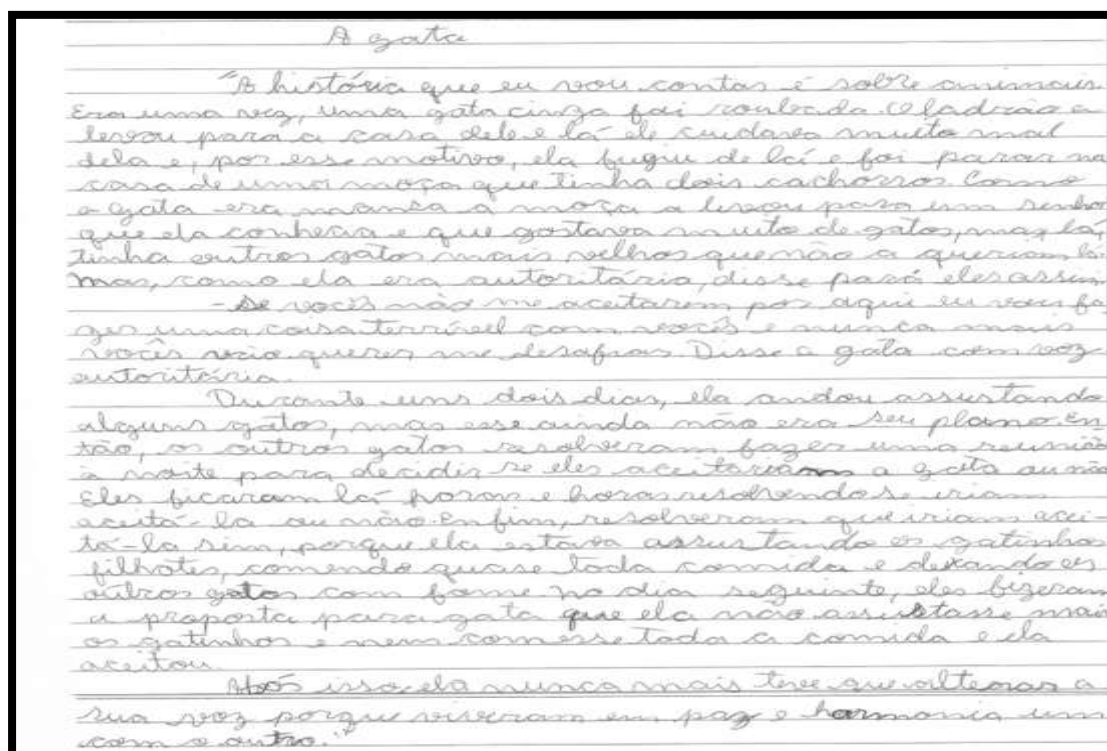 A gata
"A história que eu vou contar é sobre animais.
Era uma vez, uma gata cinza foi roubada. O ladrão a
levou para a casa dele e lá ele cuidava muito mal
dela e, por esse motivo, ela fugiu de lá e foi parar na
casa de uma moça que tinha dois cachorros. Como
a gata era mansa a moça a levou para um senhor
que ela conhecia e que gostava muito de gatos, mas lá,
tinha outros gatos mais velhos que não a queriam lá.
Mas, como ela era autoritária, disse para eles assim
- Se vocês não me aceitarem por aqui eu vou fa-
zer uma coisa terrível com vocês e nunca mais
vocês vão querer me desafiar. Disse a gata com voz
autoritária.
Durante uns dois dias, ela andou assustando
alguns gatos, mas esse ainda não era seu plano. En
tão, os outros gatos resolveram fazer uma reunião
à noite para decidir se eles aceitariam a gata ou não
Eles ficaram lá horas e horas resolvendo se iriam
aceitá-la ou não. Enfim, resolveram que iriam acei-
tá-la sim, porque ela estava assustando os gatinhos
filhotes, comendo quase toda comida e dexando os
outros gatos com fome no dia seguinte, eles fizeram
a proposta para gata que ela não assustasse mais
os gatinhos e nem comesse toda a comida e ela
aceitou.
Após isso, ela nunca mais teve que alterar a
sua voz porque viveram em paz e harmonia um
com o outro."